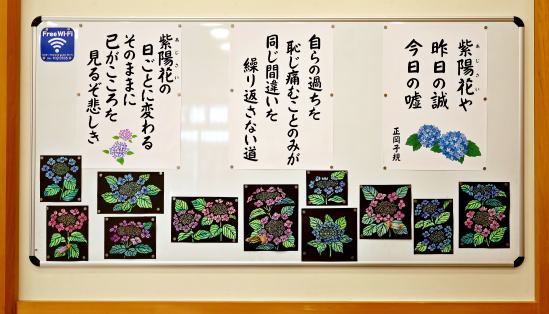 紫陽花や
昨日の誠
今日の嘘
正岡子規
自らの過ちを
恥じ痛むことのみが
同じ間違いを
繰り返さない道
紫陽花の
日ごとに変わる
そのままに
己がこころを
見るぞ悲しき
Free Wi-Fi